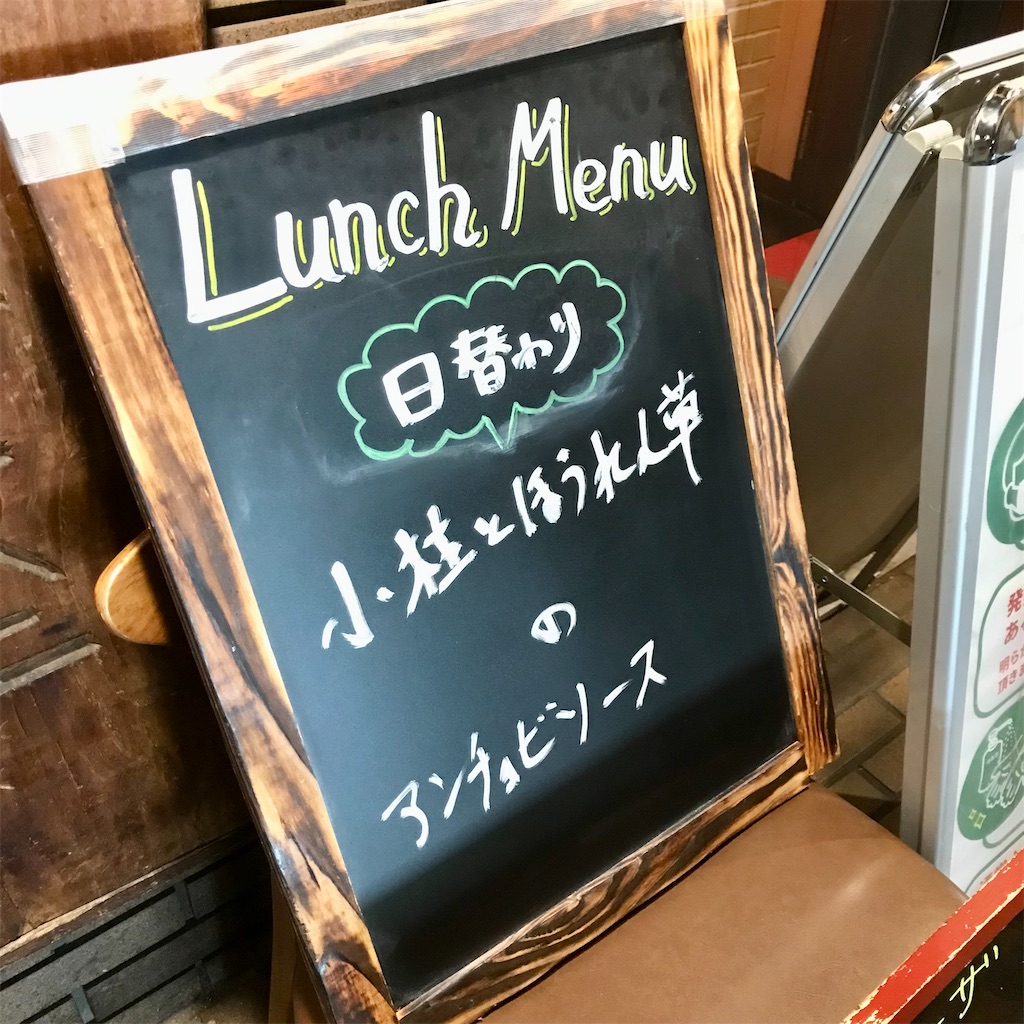 Lunch Menu
日替わり
小柱とほうれん草
の
アンチョビソース
発
あ
明ら
頂き
ザ